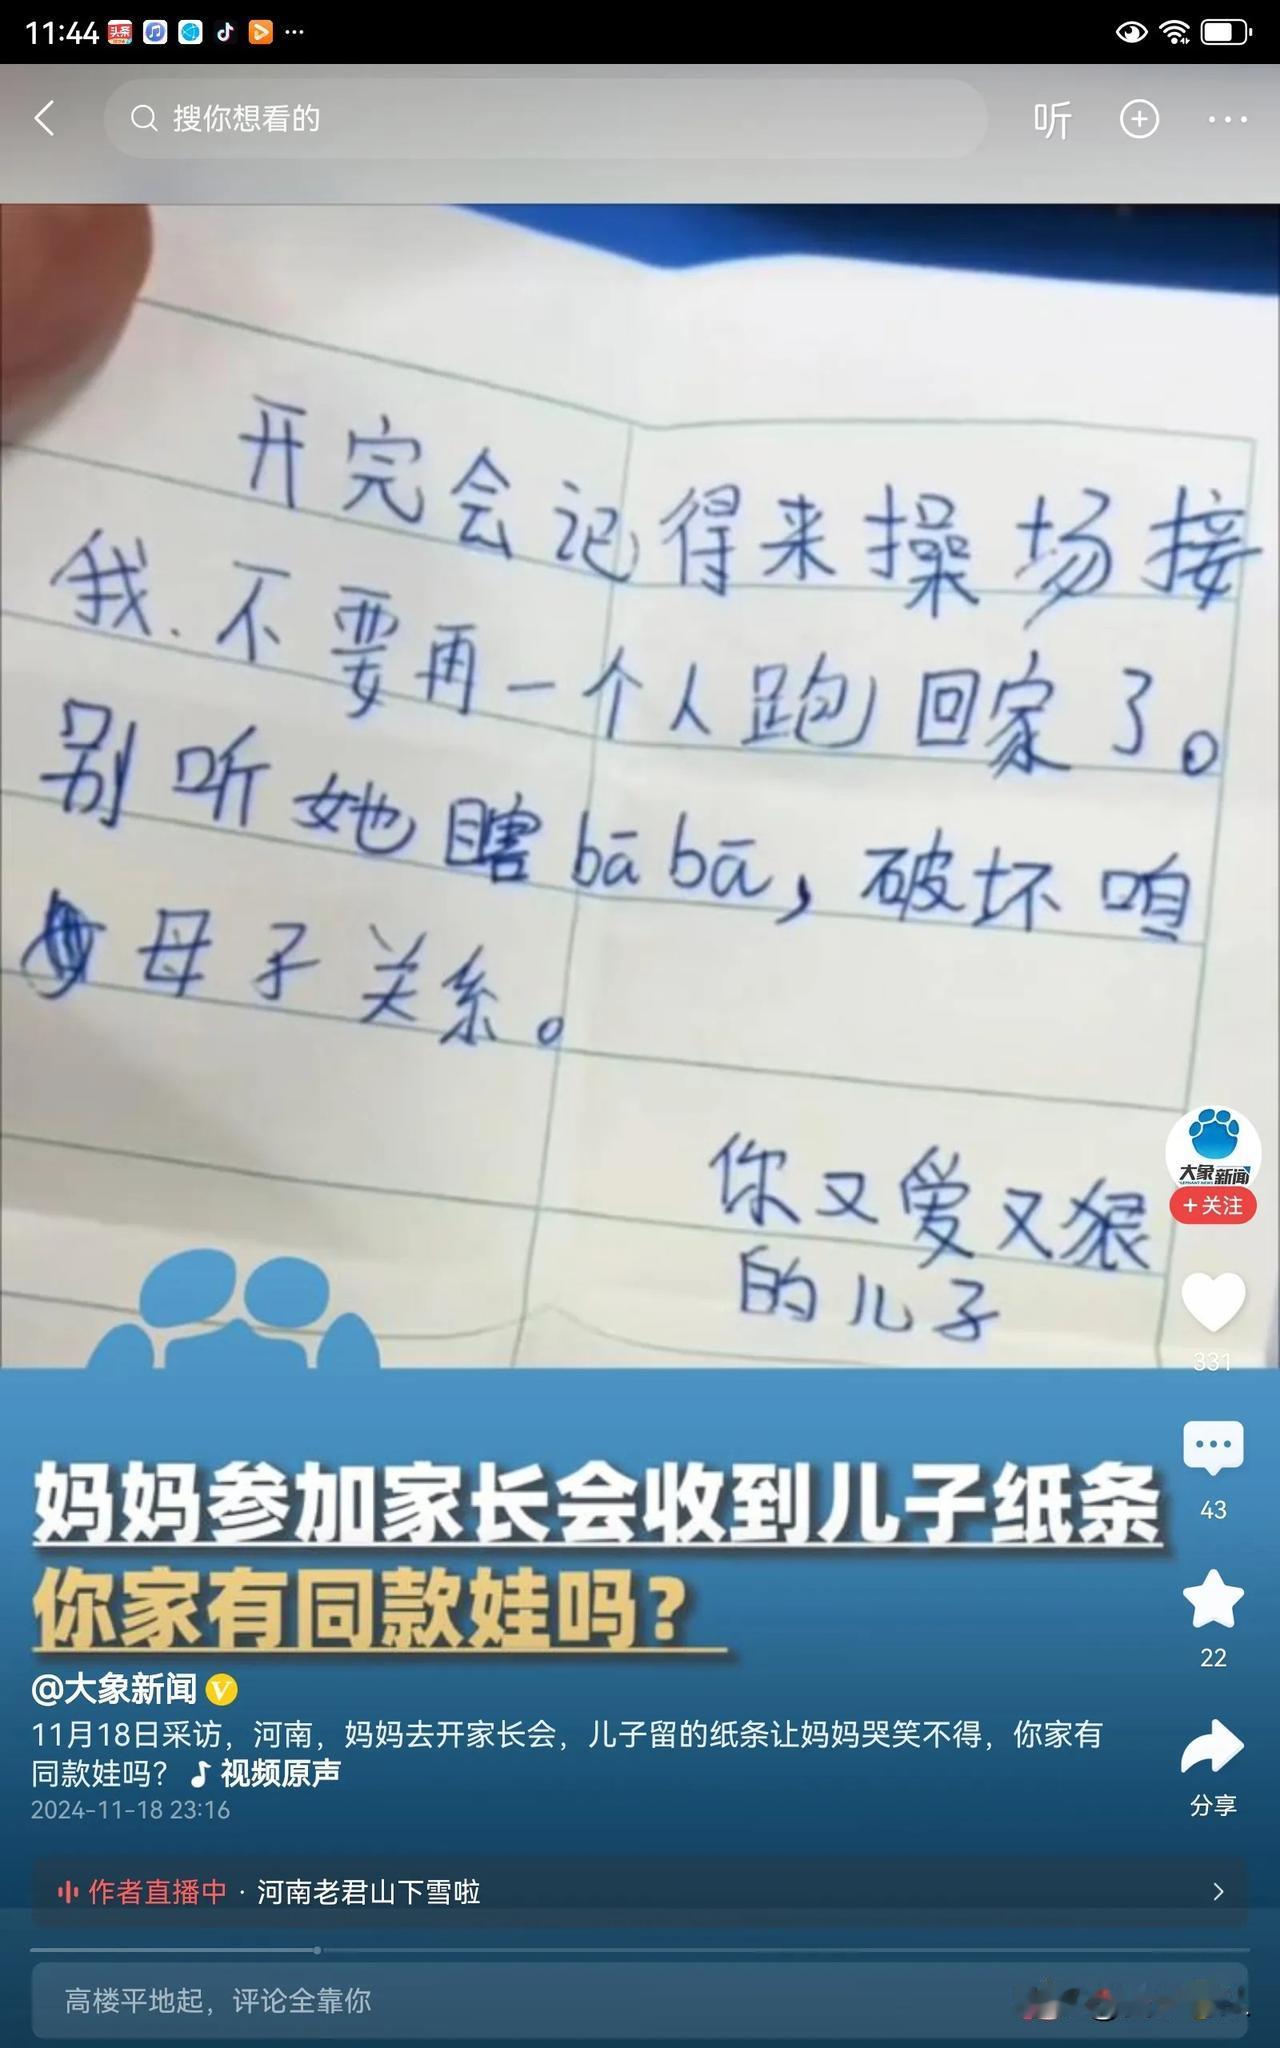 11:44
头条
搜你想看的
听
开完会记得来操场接
我.不要再一个人跑回家了。
别听她瞎bābā,破坏咱
母子关系。
你又爱又狠
的儿子
大象新闻
ELEPHANT NEWS
+关注
331
43
22
分享
妈妈参加家长会收到儿子纸条
你家有同款娃吗？
@大象新闻
11月18日采访，河南，妈妈去开家长会，儿子留的纸条让妈妈哭笑不得，你家有
同款娃吗？ 视频原声
2024-11-18 23:16
作者直播中 · 河南老君山下雪啦
高楼平地起，评论全靠你